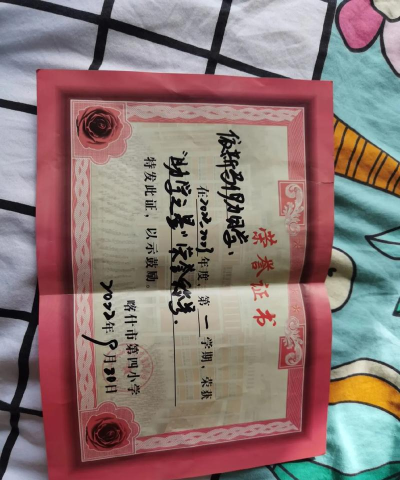 荣誉证书
在2022-2023年度，第一学期，荣获
学之星”荣誉称号．
特发此证，以示鼓励。
喀什市第四小学
2022年9月20日